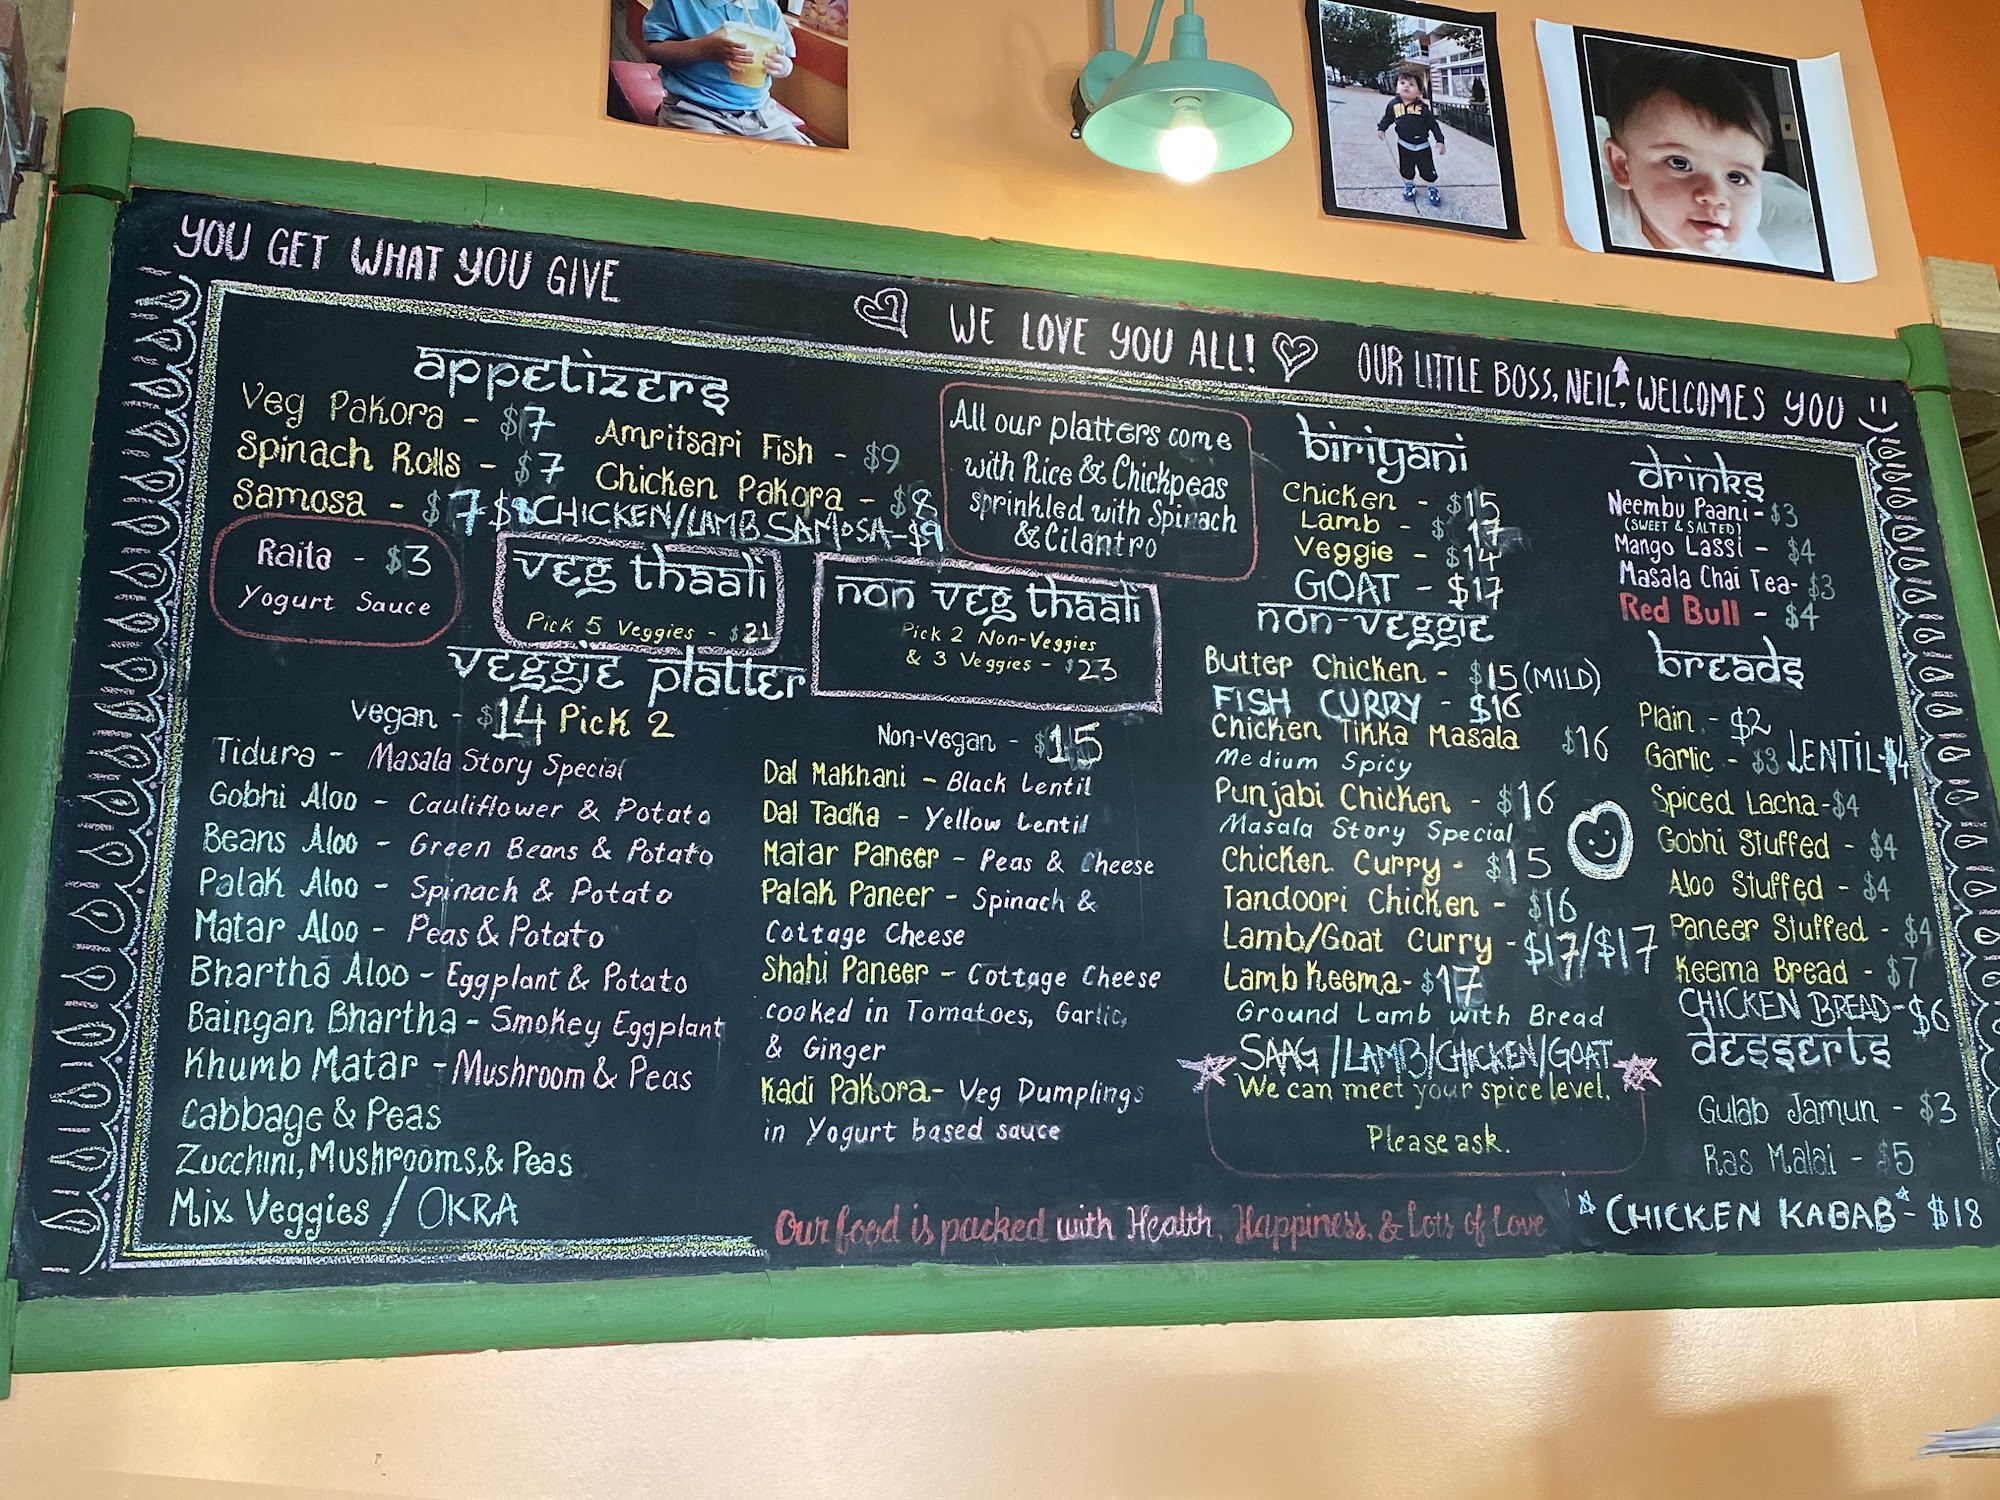 YOU GET WHAT YOU GIVE
WE LOVE YOU ALL!
OUR LITTLE BOSS, NEIL, WELCOMES YOU
appetizers
Veg Pakora - $7
Spinach Rolls - $7
Samosa - $7
Amritsari Fish - $9
Chicken Pakora - $8
CHICKEN/LAMB SAMOSA - $9
Raita - $3
Yogurt Sauce
veg thaali
Pick 5 Veggies - $21
non veg thaali
Pick 2 Non-Veggies
& 3 Veggies - $23
All our platters come
with Rice & Chickpeas
sprinkled with Spinach
& Cilantro
veggie platter
Vegan - $14 Pick 2
Tidura - Masala Story Special
Gobhi Aloo - Cauliflower & Potato
Beans Aloo - Green Beans & Potato
Palak Aloo - Spinach & Potato
Matar Aloo - Peas & Potato
Bhartha Aloo - Eggplant & Potato
Baingan Bhartha - Smokey Eggplant
Khumb Matar - Mushroom & Peas
Cabbage & Peas
Zucchini, Mushrooms, & Peas
Mix Veggies / OKRA
Non-Vegan - $15
Dal Makhani - Black Lentil
Dal Tadka - Yellow Lentil
Matar Paneer - Peas & Cheese
Palak Paneer - Spinach &
Cottage Cheese
Shahi Paneer - Cottage Cheese
cooked in Tomatoes, Garlic,
& Ginger
Kadi Pakora - Veg Dumplings
in Yogurt based sauce
biriyani
Chicken - $15
Lamb - $17
Veggie - $14
GOAT - $17
non-veggie
Butter Chicken - $15 (MILD)
FISH CURRY - $16
Chicken Tikka Masala $16
Medium Spicy
Punjabi Chicken - $16
Masala Story Special
Chicken Curry - $15
Tandoori Chicken - $16
Lamb/Goat Curry - $17/$17
Lamb Keema - $17
Ground Lamb with Bread
SAAG /LAMB/CHICKEN/GOAT
We can meet your spice level.
Please ask.
drinks
Neembu Paani - $3
(SWEET & SALTED)
Mango Lassi - $4
Masala Chai Tea - $3
Red Bull - $4
breads
Plain - $2
Garlic - $3 LENTIL - $4
Spiced Lacha - $4
Gobhi Stuffed - $4
Aloo Stuffed - $4
Paneer Stuffed - $4
Keema Bread - $7
CHICKEN BREAD - $6
desserts
Gulab Jamun - $3
Ras Malai - $5
CHICKEN KABAB - $18
Our food is packed with Health, Happiness, & Lots of Love